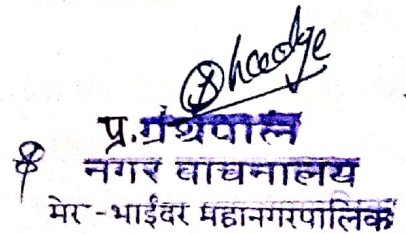 प्र.ग्रंथपाल
नगर वाचनालय
मिरा-भाईंदर महानगरपालिका